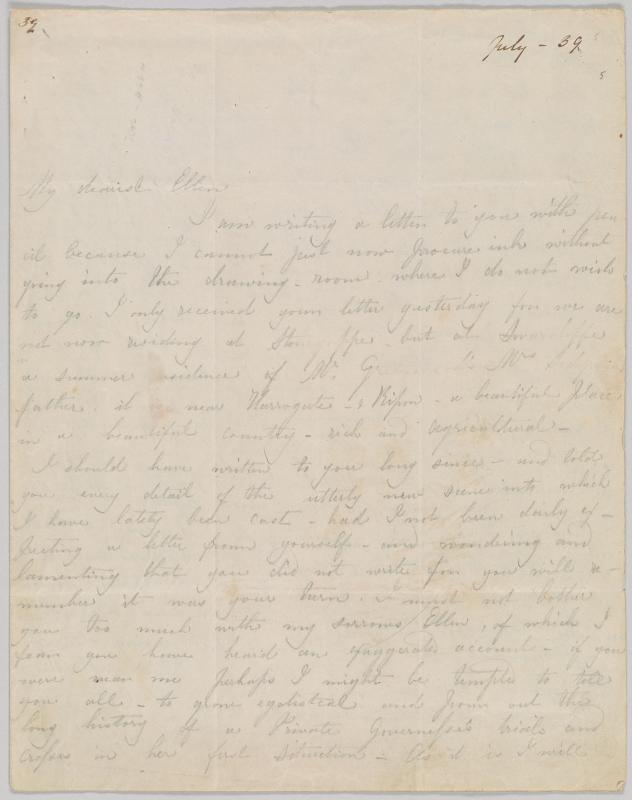 39
July - 39
My dearest Ellen
I am writing a letter to you with pen
cil because I cannot just now procure ink without
going into the drawing-room. where I do not wish
to go. I only received your letter yesterday for we are
not now residing at Stonegappe. but at Swarcliffe
a summer residence of Mr. G Mrs
father. it is near Harrogate - & Ripon - a beautiful place
in a beautiful country - rich and agricultural -
I should have written to you long since - and told
you every detail of the utterly new scene into which
I have lately been cast - had I not been daily ex-
pecting a letter from yourself - and wondering and
lamenting that you did not write for you will re-
member it was your turn. I must not bother
you too much with my sorrows Ellen, of which I
fear you have heard an exaggerated account - if you
were near me perhaps I might be tempted to tell
you all - to grow egotistical and pour out the
long history of a Private Governess's trials and
crosses in her first situation - As it is I will